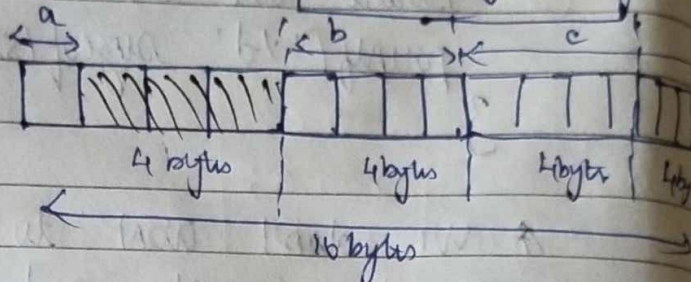 a b c
4 bytes 4bytes 4byte 4by
16 bytes